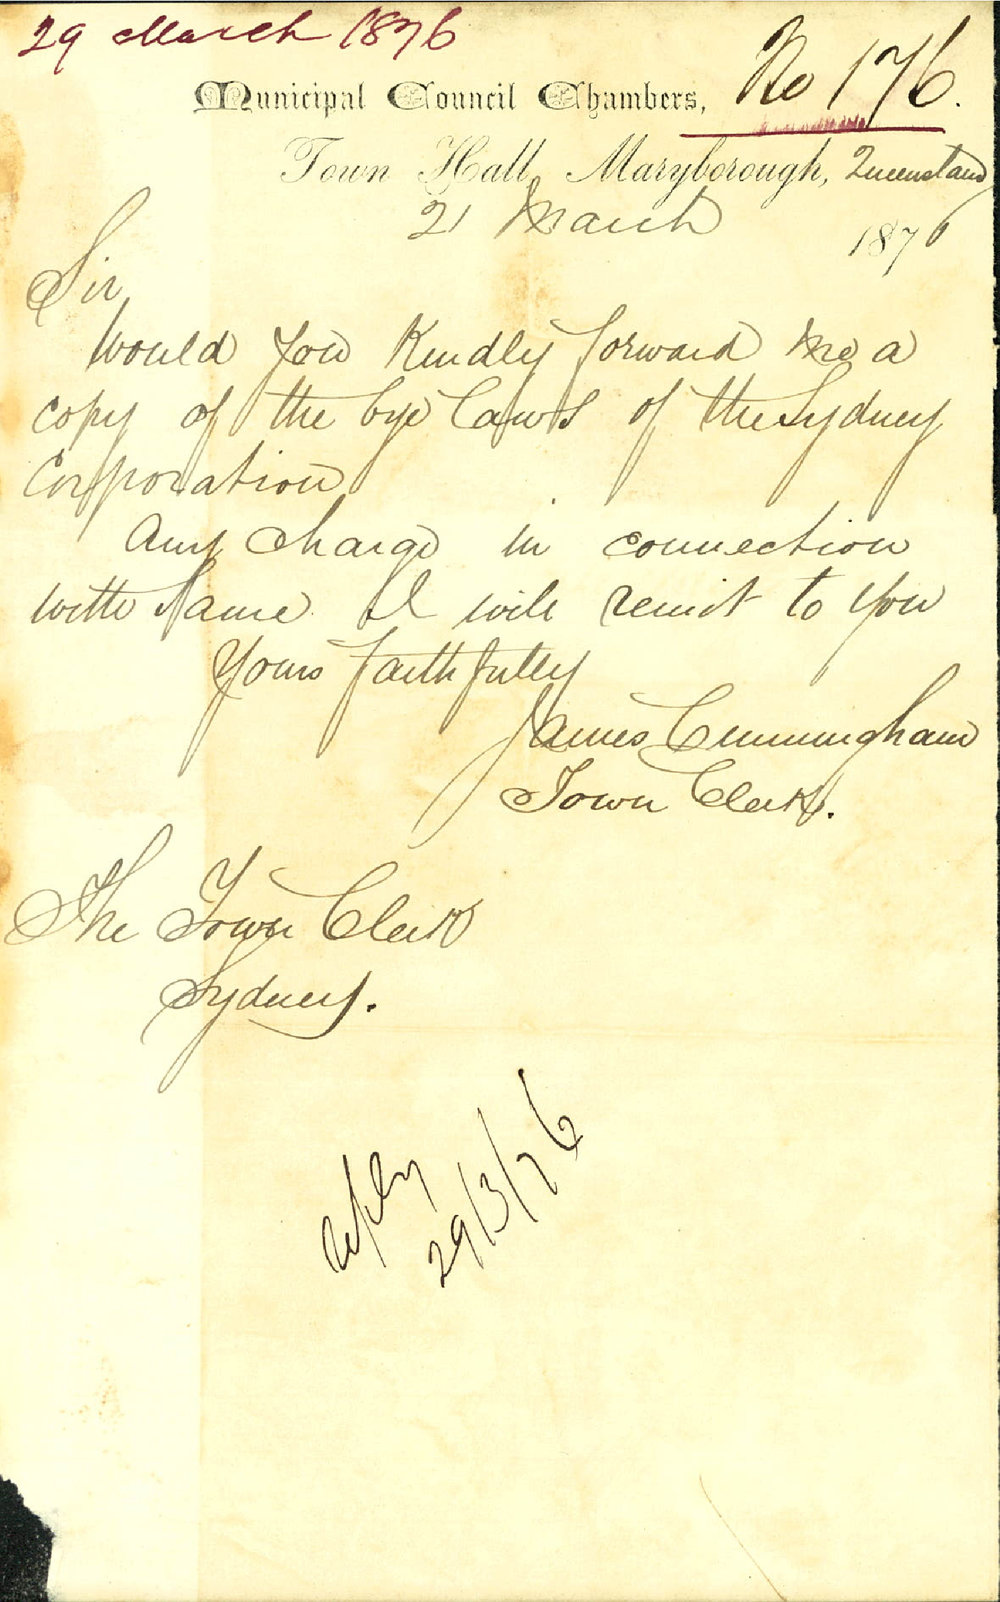 29 March 1876
No 176.
Municipal Council Chambers,
Town Hall, Maryborough, Queensland
21 March 1876
Sir
Would you Kindly forward me a
copy of the bye laws of the Sydney
Corporation
Any charge in connection
with same I will remit to you
Yours faithfully
James Cunningham
Town Clerk.
The Town Clerk
Sydney.
reply
29/3/76